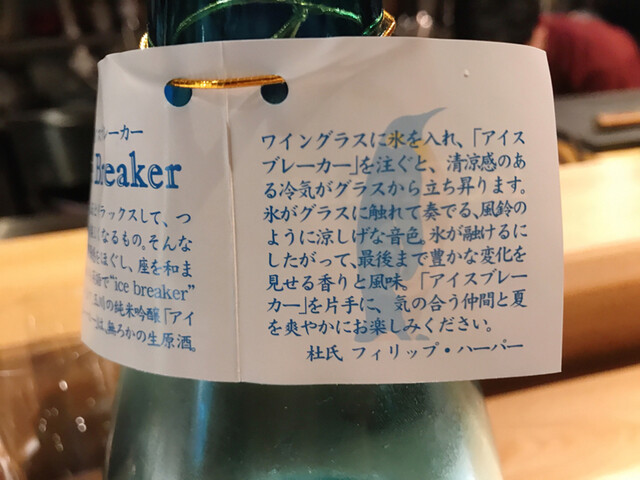 レーカー
Breaker
ラックスして、つ
くなるもの。そんな
をほぐし、座を和ま
で“ice breaker”
の純米吟醸「アイ
は、無ろかの生原酒。
ワイングラスに氷を入れ、「アイス
ブレーカー」を注ぐと、清涼感のあ
る冷気がグラスから立ち昇ります。
氷がグラスに触れて奏でる、風鈴の
ように涼しげな音色。氷が融けるに
したがって、最後まで豊かな変化を
見せる香りと風味、「アイスブレー
カー」を片手に、気の合う仲間と夏
を爽やかにお楽しみください。
杜氏 フィリップ・ハーパー